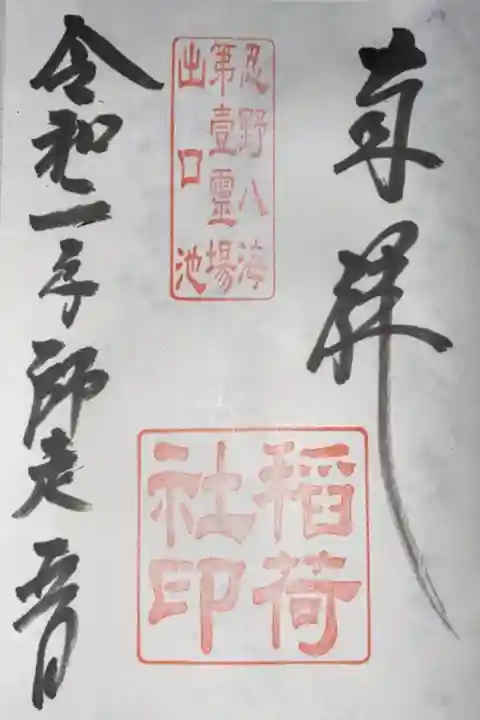 奉拝
忍野八海
第壹靈場
出口池
稲荷
社印
令和二年師走吾日